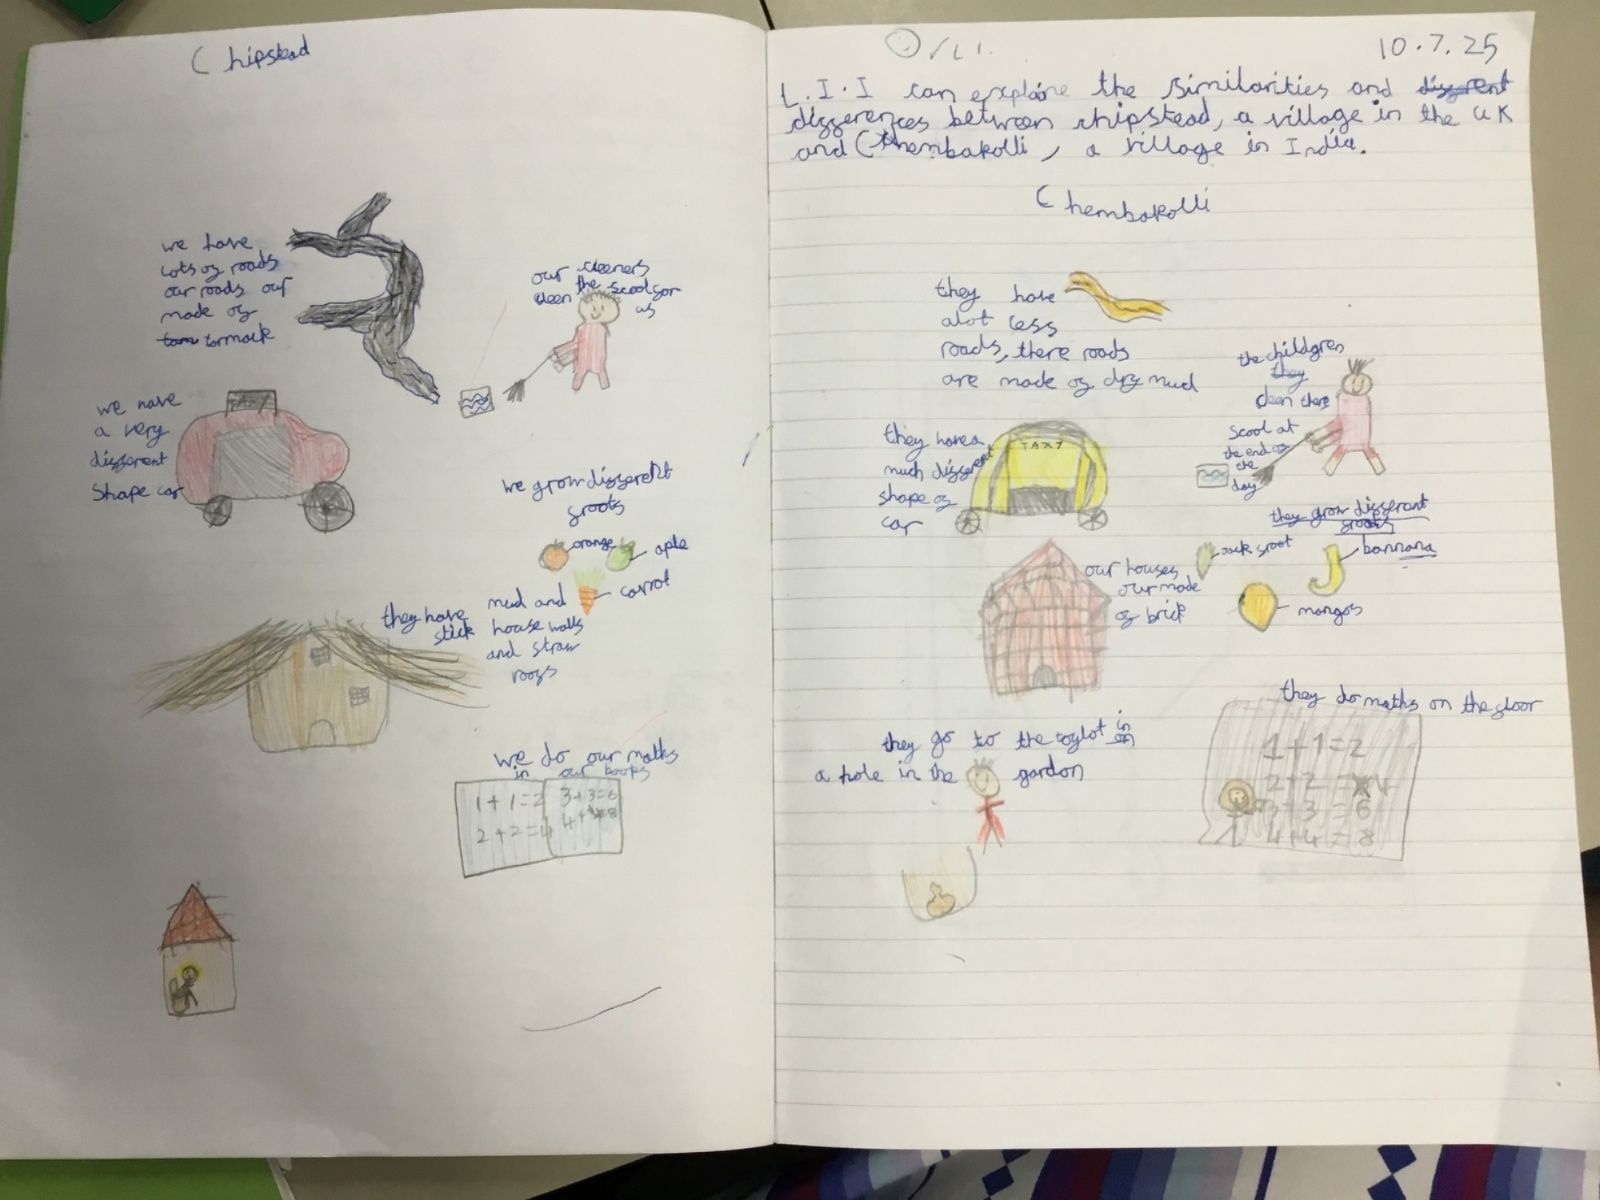 Chipstead
we have
lots of roads
our roads our
made of
tarmack
our cleeners
cleen the scool for
us
we have
a very
different
shape car
TAXY
we grow different
froots
orange
aple
carrot
they have mud and
stick house walls
and straw
roofs
we do our maths
in our books
1+1=2 3+3=6
2+2=4 4+4=8
10.7.25
L.I. I can explaine the similarities and different
differences between chipstead, a village in the UK
and Chembakolli, a village in India.
Chembakolli
they have
alot less
roads, there roads
are made of dry mud
the childgren
they
cleen there
scool at
the end of
the
day
they have a
much different
shape of
car
TAXY
they grow differant
froots
jack froot
bannana
mangos
our houses
our made
of brick
they go to the toylot in
a hole in the gardon
they do maths on the floor
1+1=2
2+2=4
3+3=6
4+4=8